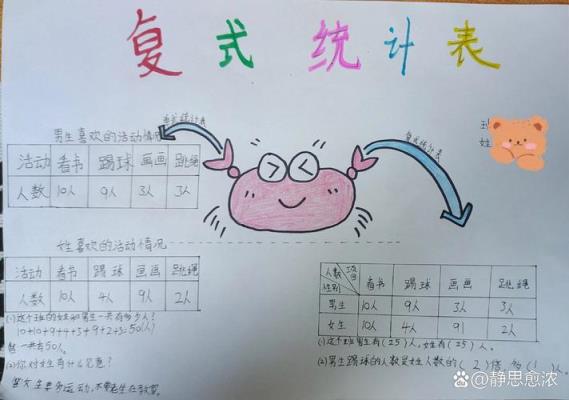 复式统计表
单式统计表
复式统计表
男生喜欢的活动情况
活动 看书 踢球 画画 跳绳
人数 10人 9人 3人 3人
姓喜欢的活动情况
活动 看书 踢球 画画 跳绳
人数 10人 4人 9人 2人
(1)这个班的女姓和男生一共有多少人?
10+10+9+4+3+9+2+3=50(人)
答一共有50人。
(2)你对女生有什么
答女生要多运动,不要老坐在教室。
班
姓
人数 项目
性别 看书 踢球 画画 跳绳
男生 10人 9人 3人 3人
女生 10人 4人 91 2人
(1)这个班男生有(25)人,女姓有(25)人。
(2)男生踢球的人数是姓人数的(2)倍多(1)人。
@静思愈浓